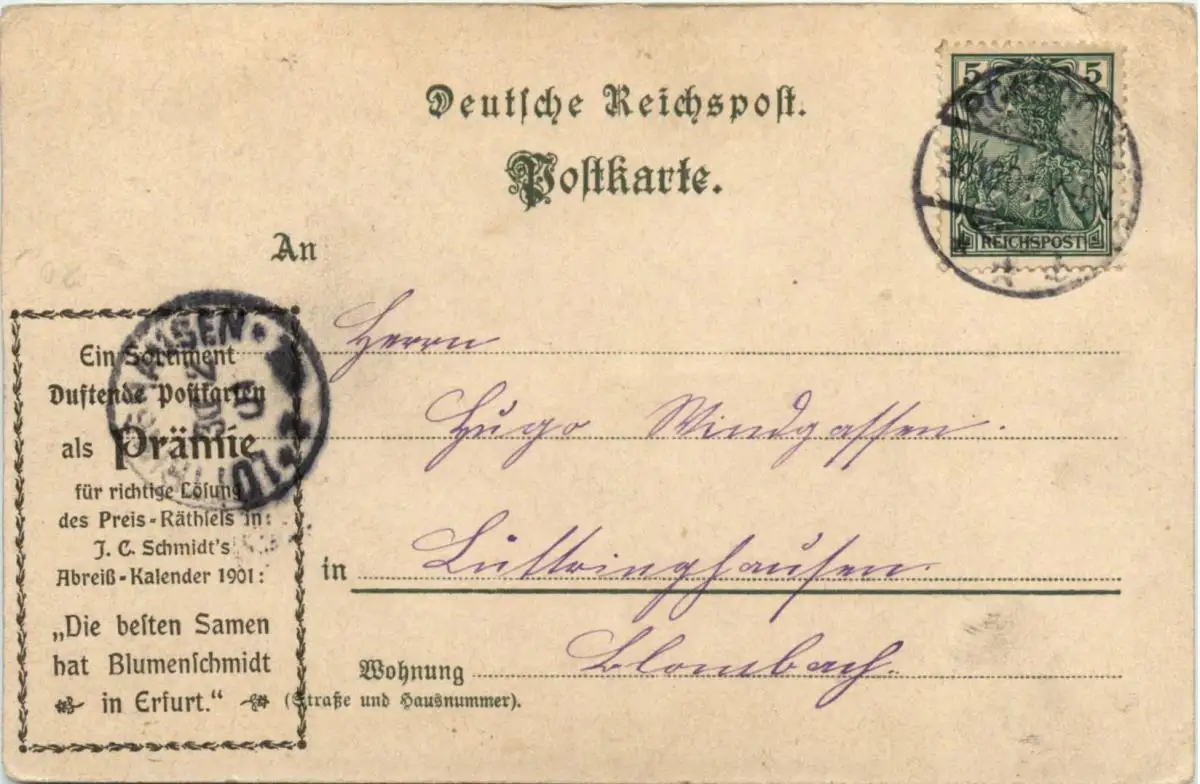 Deutsche Reichspost.
Postkarte.
5 5
REICHSPOST
An
Herrn
Hugo Windgassen.
in Lüttringhausen.
Blombach.
Wohnung
(Straße und Hausnummer).
Ein Sortiment
Duftende Postkarten
als Prämie
für richtige Lösung
des Preis-Räthsels in:
J. C. Schmidt's
Abreiß-Kalender 1901:
„Die besten Samen
hat Blumenschmidt
in Erfurt."